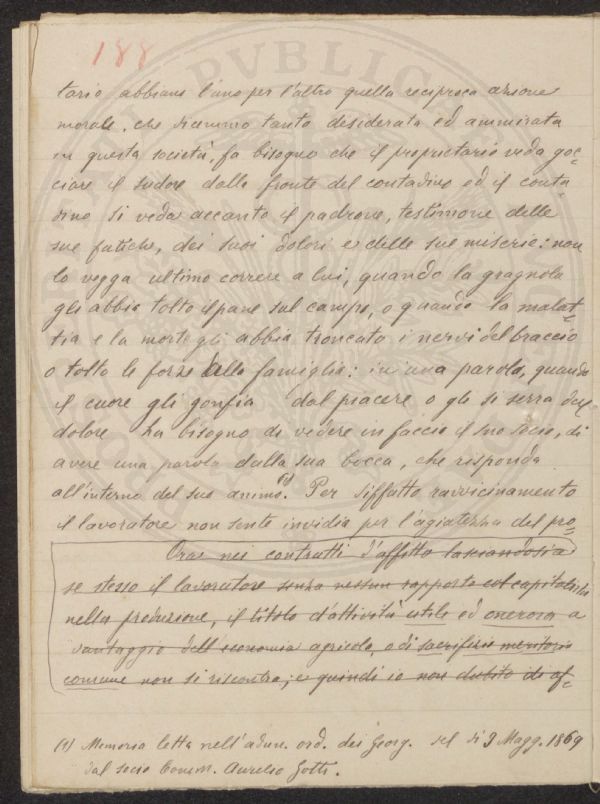 188
tario abbiano l'uno per l'altro quella reciproca azione
morale, che dicemmo tanto desiderata ed ammirata
in questa società, fa bisogno che il proprietario veda goc-
ciare il sudore dalla fronte del contadino ed il conta-
dino si veda accanto il padrone, testimone delle
sue fatiche, dei suoi dolori e delle sue miserie: non
lo vegga ultimo correre a lui, quando la gragnola
gli abbia tolto il pane sul campo, o quando la malat-
tia e la morte gli abbia troncato i nervi del braccio
o tolto le forze della famiglia: in una parola, quando
il cuore gli gonfia dal piacere o gli si serra del
dolore ha bisogno di vedere in faccia il suo socio, di
avere una parola dalla sua bocca, che risponda
all'interno del suo animo. (1) Per siffatto ravvicinamento
il lavoratore non sente invidia per l'agiatezza del pro-
Ora nei contratti d'affitto lasciandosi a
se stesso il lavoratore senza nessun rapporto col capitalista
nella produzione, il titolo d'attività utile ed onerosa a
vantaggio dell'economia agricola, o di sacrifizio meritorio
comune non si riscontra; e quindi io non dubito di af-
(1) Memoria letta nell'adun. ord. dei Georg. del dì 3 Magg. 1869
dal socio Comm. Aurelio Gotti.
PVBLICA